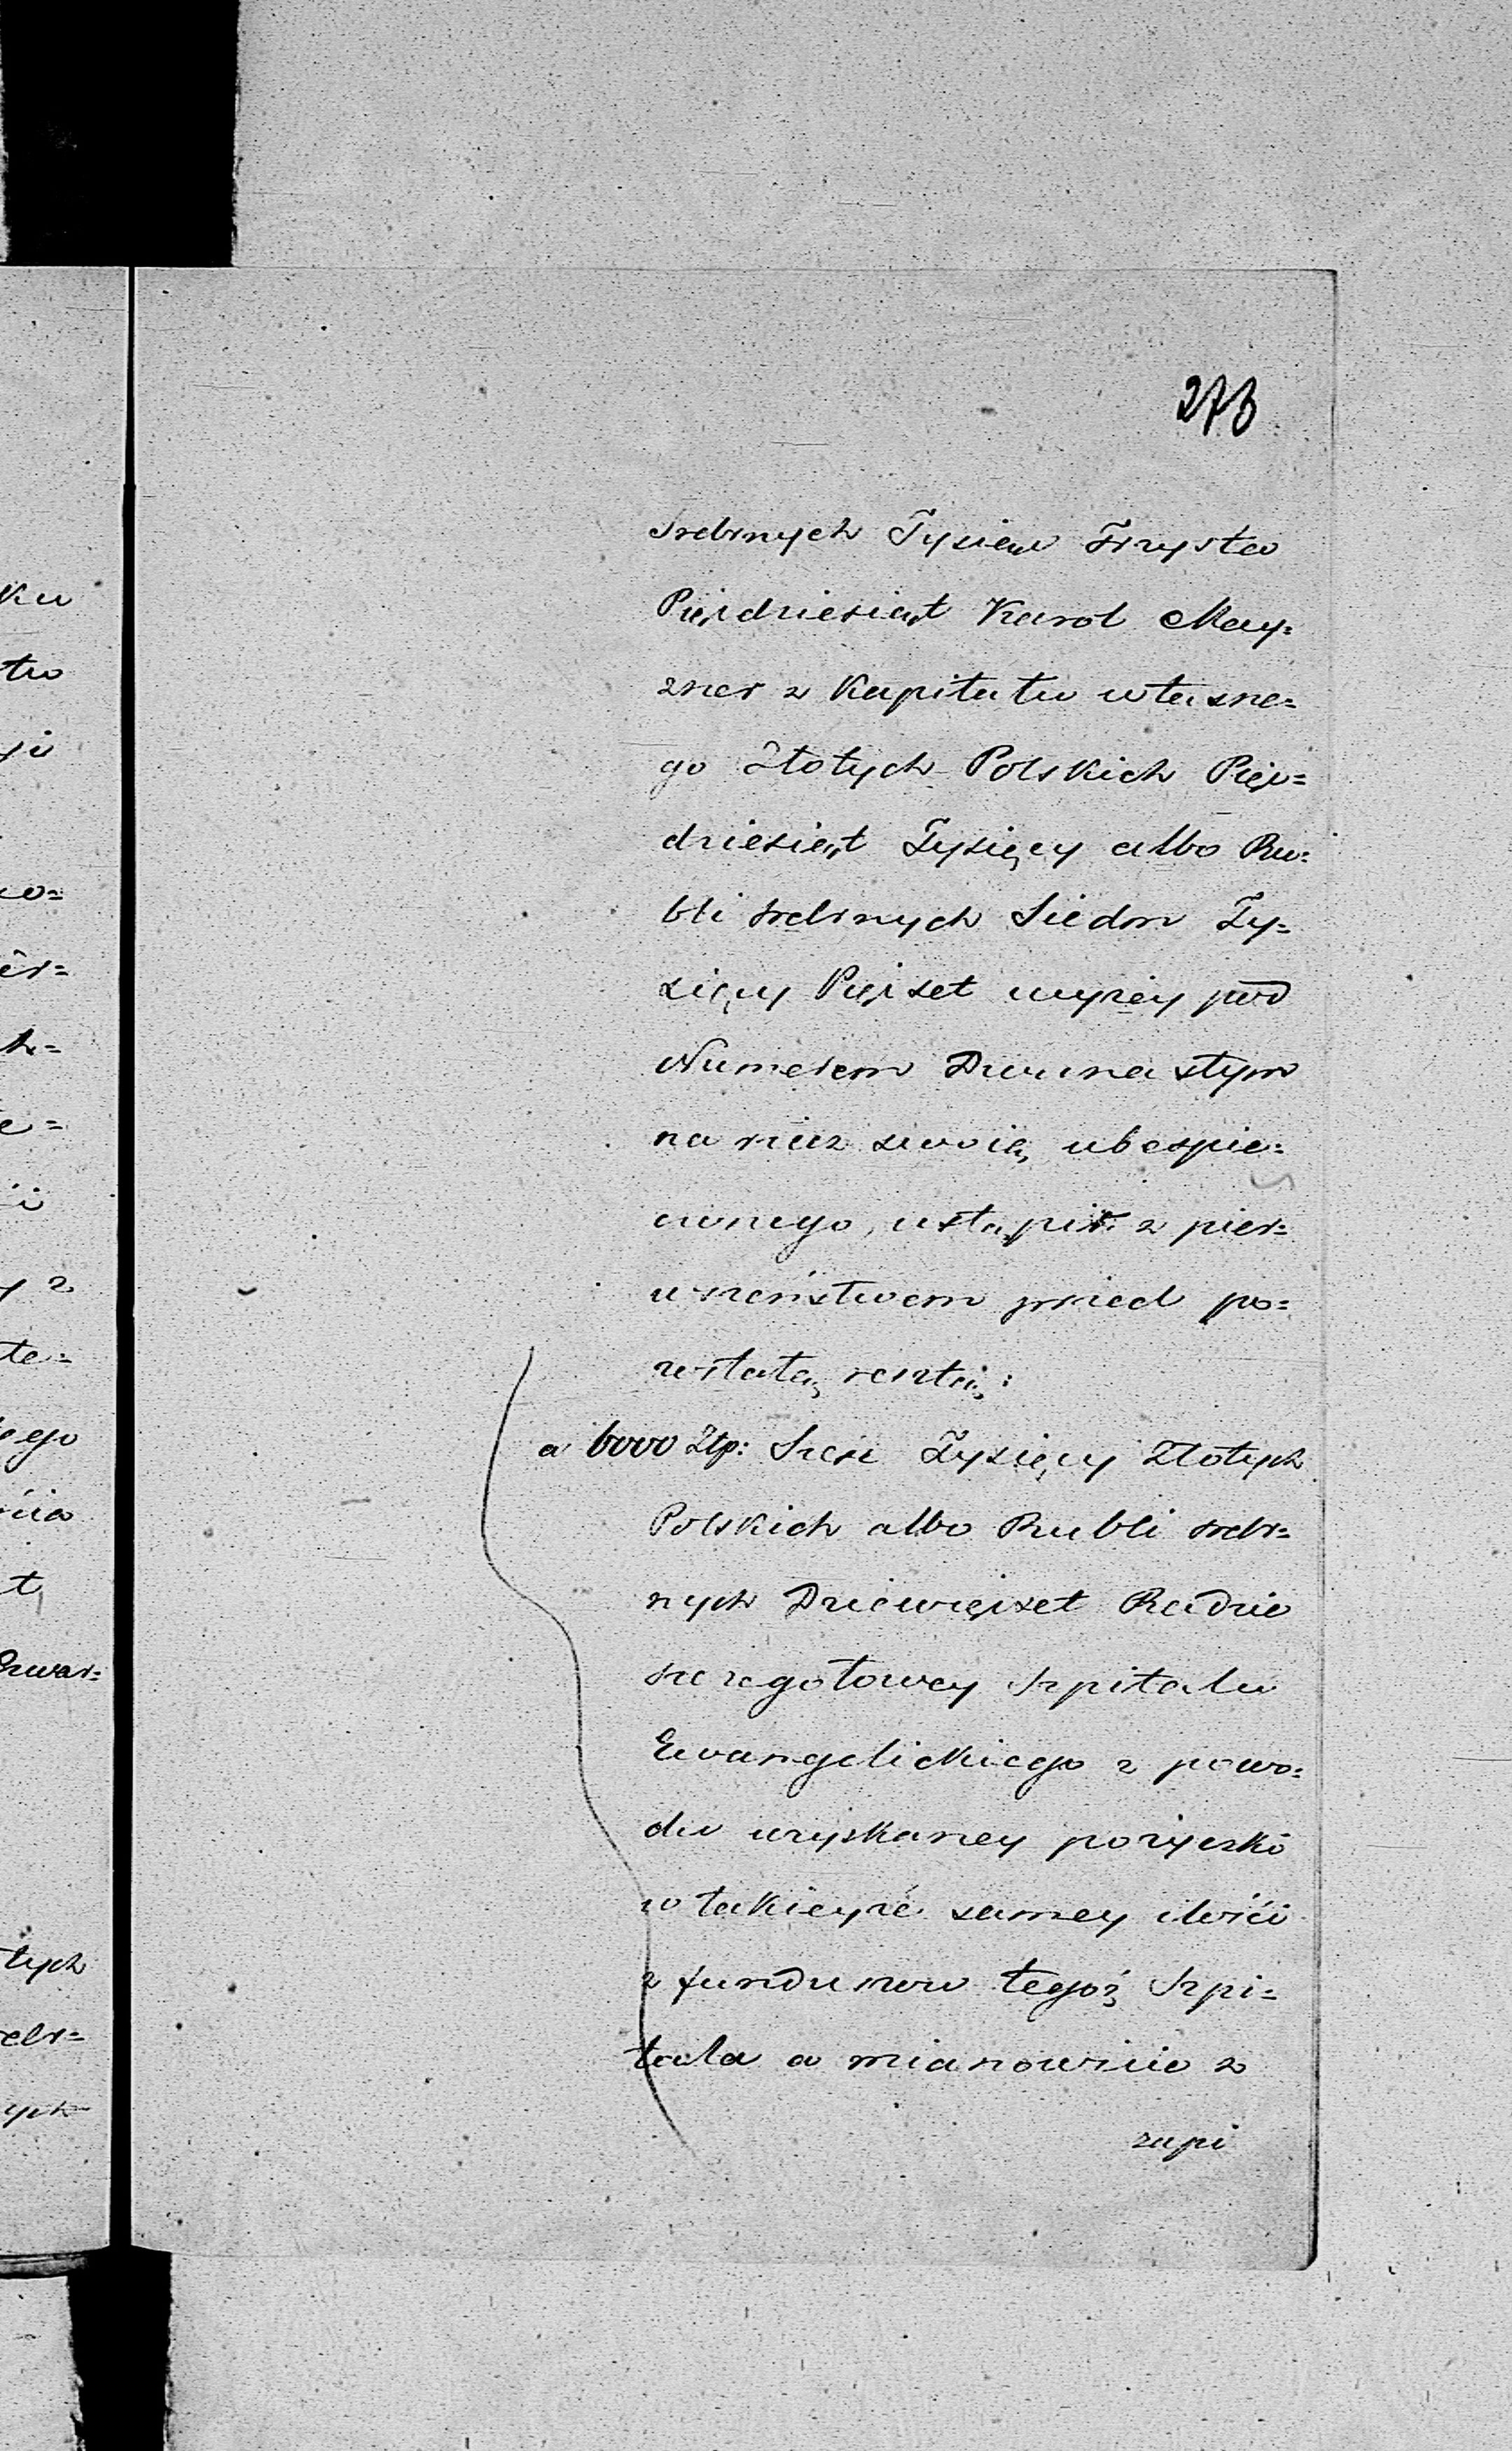 273
srebrnych Tysiąc Trzysta
Pięćdziesiąt Karol May=
zner z Kapitału własne=
go Złotych Polskich Pięć=
dziesiąt Tysięcy albo Ru=
bli srebrnych Siedm Ty=
sięcy Pięćset wyżey pod
Numerem Dwunastym
na rzecz swoią ubespie=
czonego, ustąpił z pier=
wszeństwem przed po=
zostałą resztą:
a 6000 Złp: Sześć Tysięcy Złotych
Polskich albo Rubli srebr=
nych Dziewięćset Radzie
szczegołowey Szpitalu
Ewangelickiego z powo=
du uzyskaney pożyczki
w takieyże samey ilości
z funduszow tegoż Szpi=
tala a mianowicie z
zapi
ku
two
ji
co=
ér=
k=
e=
y z
te=
ego
tych
rebr=
ych